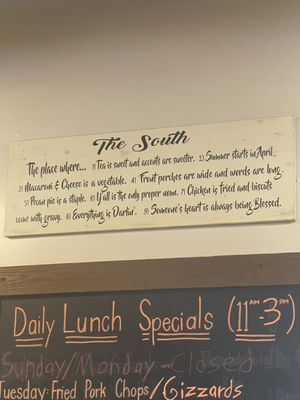 The South
The place where... 1) Tea is sweet and accents are sweeter. 2) Summer starts in April.
3) Macaroni & Cheese is a vegetable. 4) Front porches are wide and words are long.
5) Pecan pie is a staple. 6) Y'all is the only proper noun. 7) Chicken is fried and biscuits
come with gravy. 8) Everything is Darlin'. 9) Someone's heart is always being Blessed.
Daily Lunch Specials (11AM-3PM)
Sunday/Monday-Closed
Tuesday-Fried Pork Chops/Gizzards